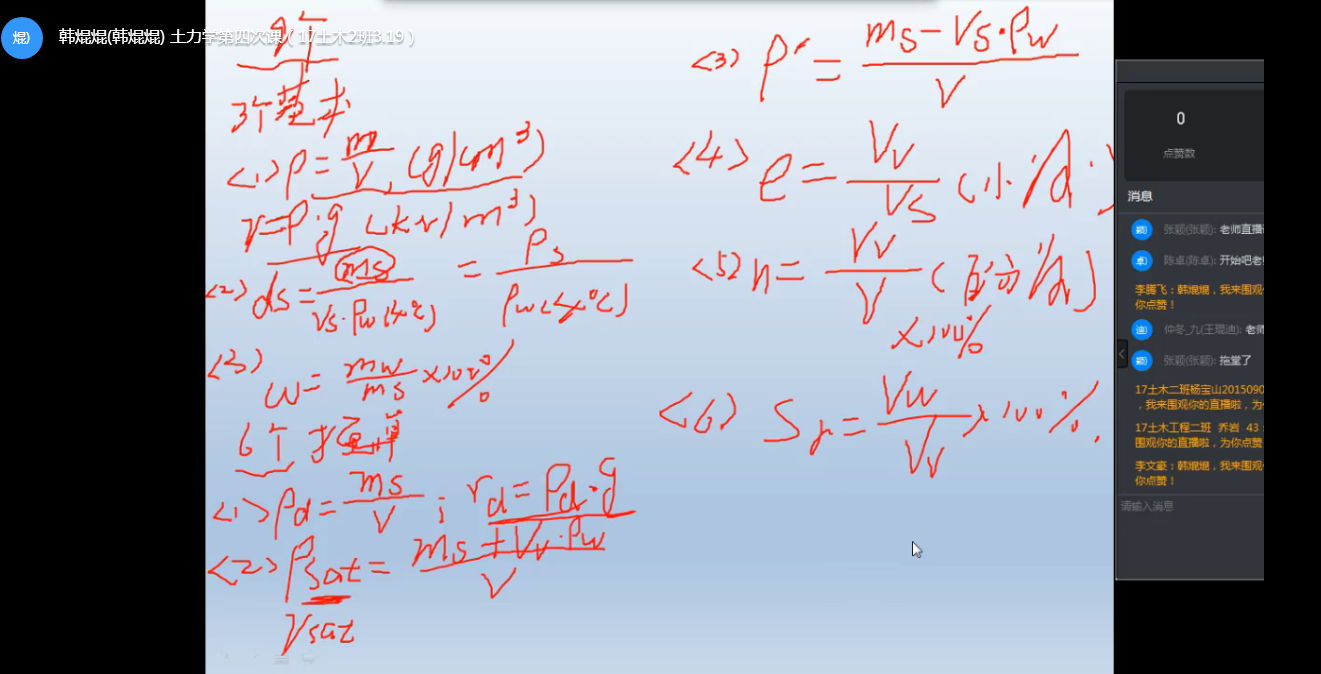 焜)
韩焜焜(韩焜焜) 土力学第四次课（17土木2班3.19）
9个
3个基本
<1> ρ = m/V (g/cm³)
γ=ρ·g (kN/m³)
<2> ds = ms/Vs·ρw(4℃) = ρs/ρw(4℃)
<3> ω = mw/ms ×100%
6个
<1> ρd = ms/V ; γd = ρd·g
<2> ρsat = ms+Vv·ρw/V
γsat
<3> ρ′ = ms-Vs·ρw/V
<4> e = Vv/Vs (小
<5> n = Vv/V (百分
×100%
<6> Sr = Vw/Vv ×100%.
0
点赞数
消息
张颖(张颖): 老师直播
陈卓(陈卓): 开始吧老
李腾飞：韩焜焜，我来围观
你点赞！
仲冬_九(王琨迪): 老师
张颖(张颖): 拖堂了
17土木二班杨宝山2015090
，我来围观你的直播啦，为
17土木工程二班 乔岩 43：
围观你的直播啦，为你点赞
李文豪：韩焜焜，我来围观
你点赞！
请输入消息